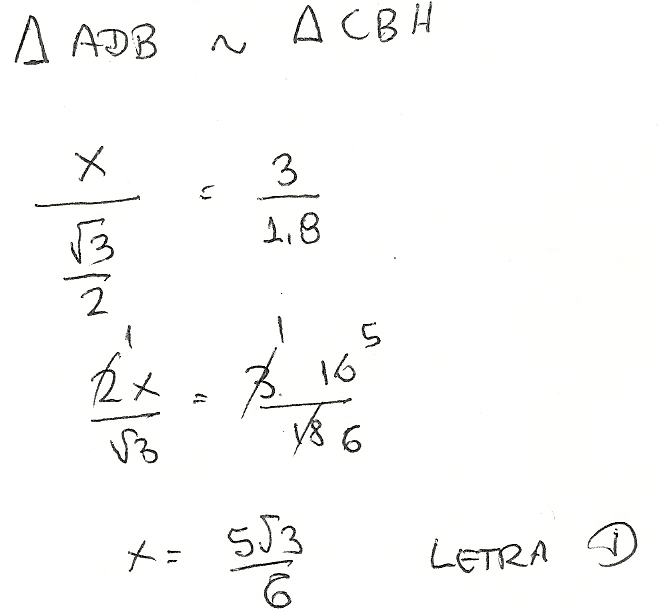 Δ ADB ~ Δ CBH
x / (√3/2) = 3 / 1,8
2 1 x / √3 = 3 1 . 10 5 / 18 6
x = 5√3 / 6 LETRA D